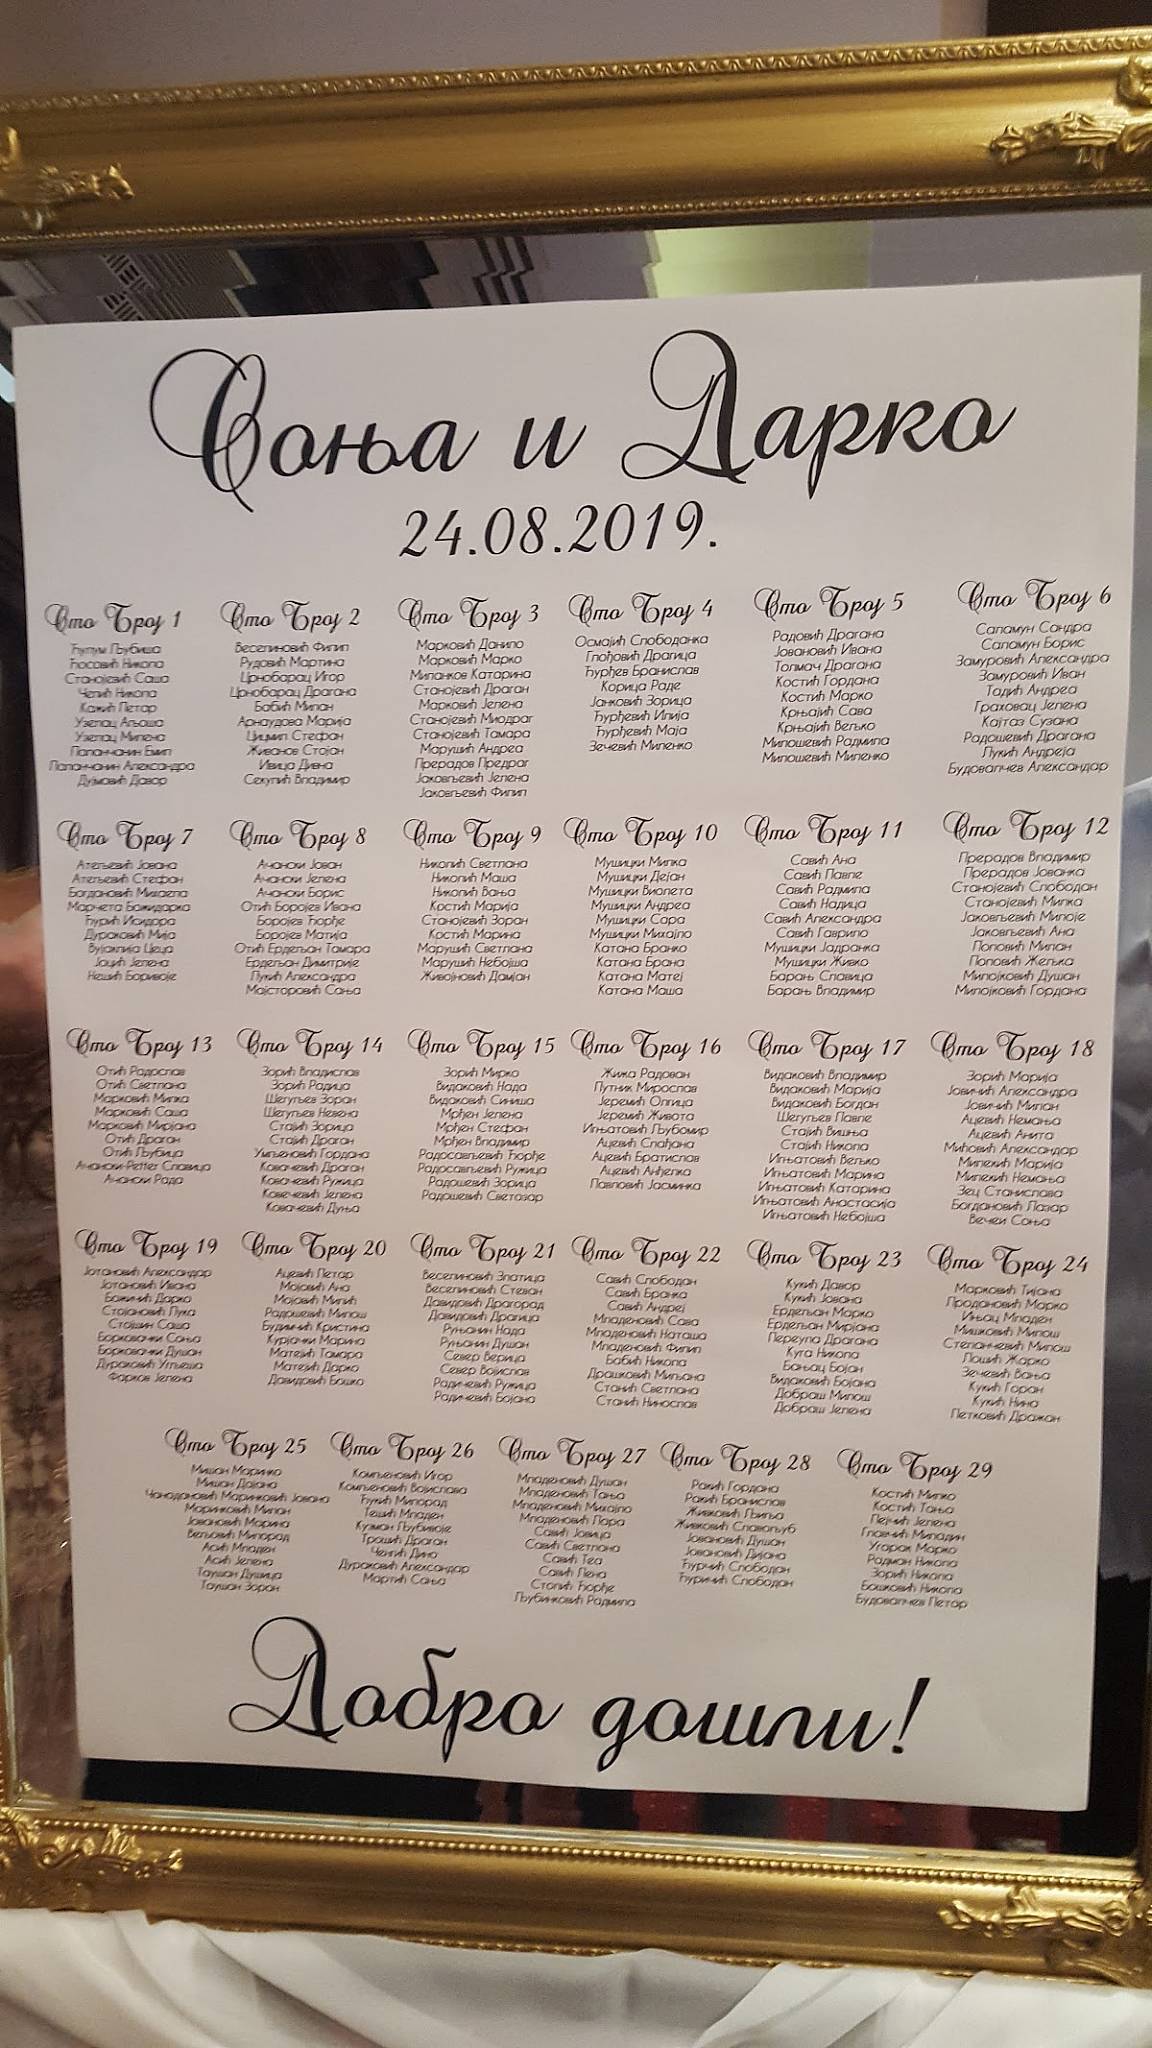 Соња и Дарко
24.08.2019.
Сто Број 1
Ћулум Љубиша
Ћосовић Никола
Станојевић Саша
Челић Никола
Кажић Петар
Узелац Аљоша
Узелац Милена
Паланчанин Емил
Паланчанин Александра
Дујмовић Давор
Сто Број 2
Веселиновић Филип
Рудовић Мартина
Црнобарац Игор
Црнобарац Драгана
Бабић Милан
Арнаудова Марија
Цицмил Стефан
Живанов Стојан
Ивица Дивна
Секулић Владимир
Сто Број 3
Марковић Данило
Марковић Марко
Миланков Катарина
Станојевић Драган
Марковић Јелена
Станојевић Миодраг
Станојевић Тамара
Марушић Андреа
Прерадов Предраг
Јаковљевић Јелена
Јаковљевић Филип
Сто Број 4
Осмајић Слободанка
Глођовић Драгица
Ћурђев Бранислав
Корица Раде
Јанковић Зорица
Ђурђевић Илија
Ђурђевић Маја
Зечевић Миленко
Сто Број 5
Радовић Драгана
Јовановић Ивана
Толмач Драгана
Костић Гордана
Костић Марко
Крњајић Сава
Крњајић Вељко
Милошевић Радмила
Милошевић Миленко
Сто Број 6
Саламун Сандра
Саламун Борис
Замуровић Александра
Замуровић Иван
Тадић Андреа
Граховац Јелена
Кајтаз Сузана
Радошевић Драгана
Лукић Андреја
Будовалчев Александар
Сто Број 7
Атељевић Јована
Атељевић Стефан
Богдановић Михаела
Марчета Божидарка
Ћурић Исидора
Дураковић Мија
Вујаклија Цеца
Јоцић Јелена
Нешић Боривоје
Сто Број 8
Ачански Јован
Ачански Јелена
Ачански Борис
Отић Боројев Ивана
Боројев Ђорђе
Боројев Матија
Отић Ердељан Тамара
Ердељан Димитрије
Лукић Александра
Мајсторовић Сања
Сто Број 9
Николић Светлана
Николић Маша
Николић Вања
Костић Марија
Станојевић Зоран
Костић Марина
Марушић Светлана
Марушић Небојша
Живојновић Дамјан
Сто Број 10
Мушицки Милка
Мушицки Дејан
Мушицки Виолета
Мушицки Андреа
Мушицки Сара
Мушицки Михајло
Катана Бранко
Катана Брана
Катана Матеј
Катана Маша
Сто Број 11
Савић Ана
Савић Павле
Савић Радмила
Савић Надица
Савић Александра
Савић Гаврило
Мушицки Јадранка
Мушицки Живко
Барањ Славица
Барањ Владимир
Сто Број 12
Прерадов Владимир
Прерадов Јованка
Станојевић Слободан
Станојевић Милка
Јаковљевић Милоје
Јаковљевић Ана
Поповић Милан
Поповић Жељка
Милојковић Душан
Милојковић Гордана
Сто Број 13
Отић Радослав
Отић Светлана
Марковић Милка
Марковић Саша
Марковић Мирјана
Отић Драган
Отић Љубица
Ачански-Petter Славица
Ачански Рада
Сто Број 14
Зорић Владислав
Зорић Радица
Шегуљев Зоран
Шегуљев Невена
Стајић Зорица
Стајић Драган
Умљеновић Гордана
Ковачевић Драган
Ковачевић Ружица
Ковечевић Јелена
Ковачевић Дуња
Сто Број 15
Зорић Мирко
Видаковић Нада
Видаковић Синиша
Мрђен Јелена
Мрђен Стефан
Мрђен Владимир
Радосављевић Ђорђе
Радосављевић Ружица
Радошевић Зорица
Радошевић Светозар
Сто Број 16
Жижа Радован
Путник Мирослав
Јеремић Олгица
Јеремић Живота
Игњатовић Љубомир
Ацевић Слађана
Ацевић Братислав
Ацевић Анђелка
Павловић Јасминка
Сто Број 17
Видаковић Владимир
Видаковић Марија
Видаковић Богдан
Шегуљев Павле
Стајић Вишња
Стајић Никола
Игњатовић Вељко
Игњатовић Марина
Игњатовић Катарина
Игњатовић Анастасија
Игњатовић Небојша
Сто Број 18
Зорић Марија
Јовичић Александра
Јовичић Милан
Ацевић Немања
Ацевић Анита
Мићовић Александар
Милекић Марија
Милекић Немања
Зец Станислава
Богдановић Лазар
Вечеи Соња
Сто Број 19
Јотановић Александар
Јотановић Ивана
Божичић Дарко
Стојановић Лука
Стојшин Саша
Борковачки Соња
Борковачки Душан
Дураковић Угљеша
Фарков Јелена
Сто Број 20
Ацевић Петар
Мојовић Ана
Мојовић Милић
Радошевић Милош
Будимчић Кристина
Курјачки Марина
Матејић Тамара
Матејић Дарко
Давидовић Бошко
Сто Број 21
Веселиновић Златица
Веселиновић Стеван
Давидовић Драгорад
Давидовић Драгица
Руњанин Нада
Руњанин Душан
Север Верица
Север Војислав
Радичевић Ружица
Радичевић Бојана
Сто Број 22
Савић Слободан
Савић Бранка
Савић Андреј
Младеновић Сава
Младеновић Наташа
Младеновић Филип
Бабић Никола
Драшковић Миљана
Станић Светлана
Станић Нинослав
Сто Број 23
Кукић Давор
Кукић Јована
Ердељан Марко
Ердељан Мирјана
Переула Драгана
Кута Никола
Бањац Бојан
Видаковић Бојана
Добраш Милош
Добраш Јелена
Сто Број 24
Марковић Тијана
Продановић Марко
Ињац Младен
Мишковић Милош
Степанчевић Милош
Лошић Жарко
Зечевић Вања
Кукић Горан
Кукић Нина
Петковић Дражан
Сто Број 25
Мишан Маринко
Мишан Дајана
Чанадановић Маринковић Јована
Маринковић Милан
Јовановић Марина
Вељовић Милорад
Асић Младен
Асић Јелена
Таушан Душица
Таушан Зоран
Сто Број 26
Комљеновић Игор
Комљеновић Војислава
Ђукић Милорад
Тешић Младен
Кузман Љубивоје
Трошић Драган
Ченгић Дино
Дураковић Александар
Мартић Сања
Сто Број 27
Младеновић Душан
Младеновић Тања
Младеновић Михајло
Младеновић Лара
Савић Јовица
Савић Светлана
Савић Теа
Савић Лена
Столић Ђорђе
Љубинковић Радмила
Сто Број 28
Ракић Гордана
Ракић Бранислав
Живковић Љиља
Живковић Славољуб
Јовановић Душан
Јовановић Дијана
Ћурчић Слободан
Ђуричић Слободан
Сто Број 29
Костић Милко
Костић Тања
Пејчић Јелена
Главчић Миладин
Угарак Марко
Радман Никола
Зорић Никола
Бошковић Никола
Будовалчев Петар
Добро дошли!